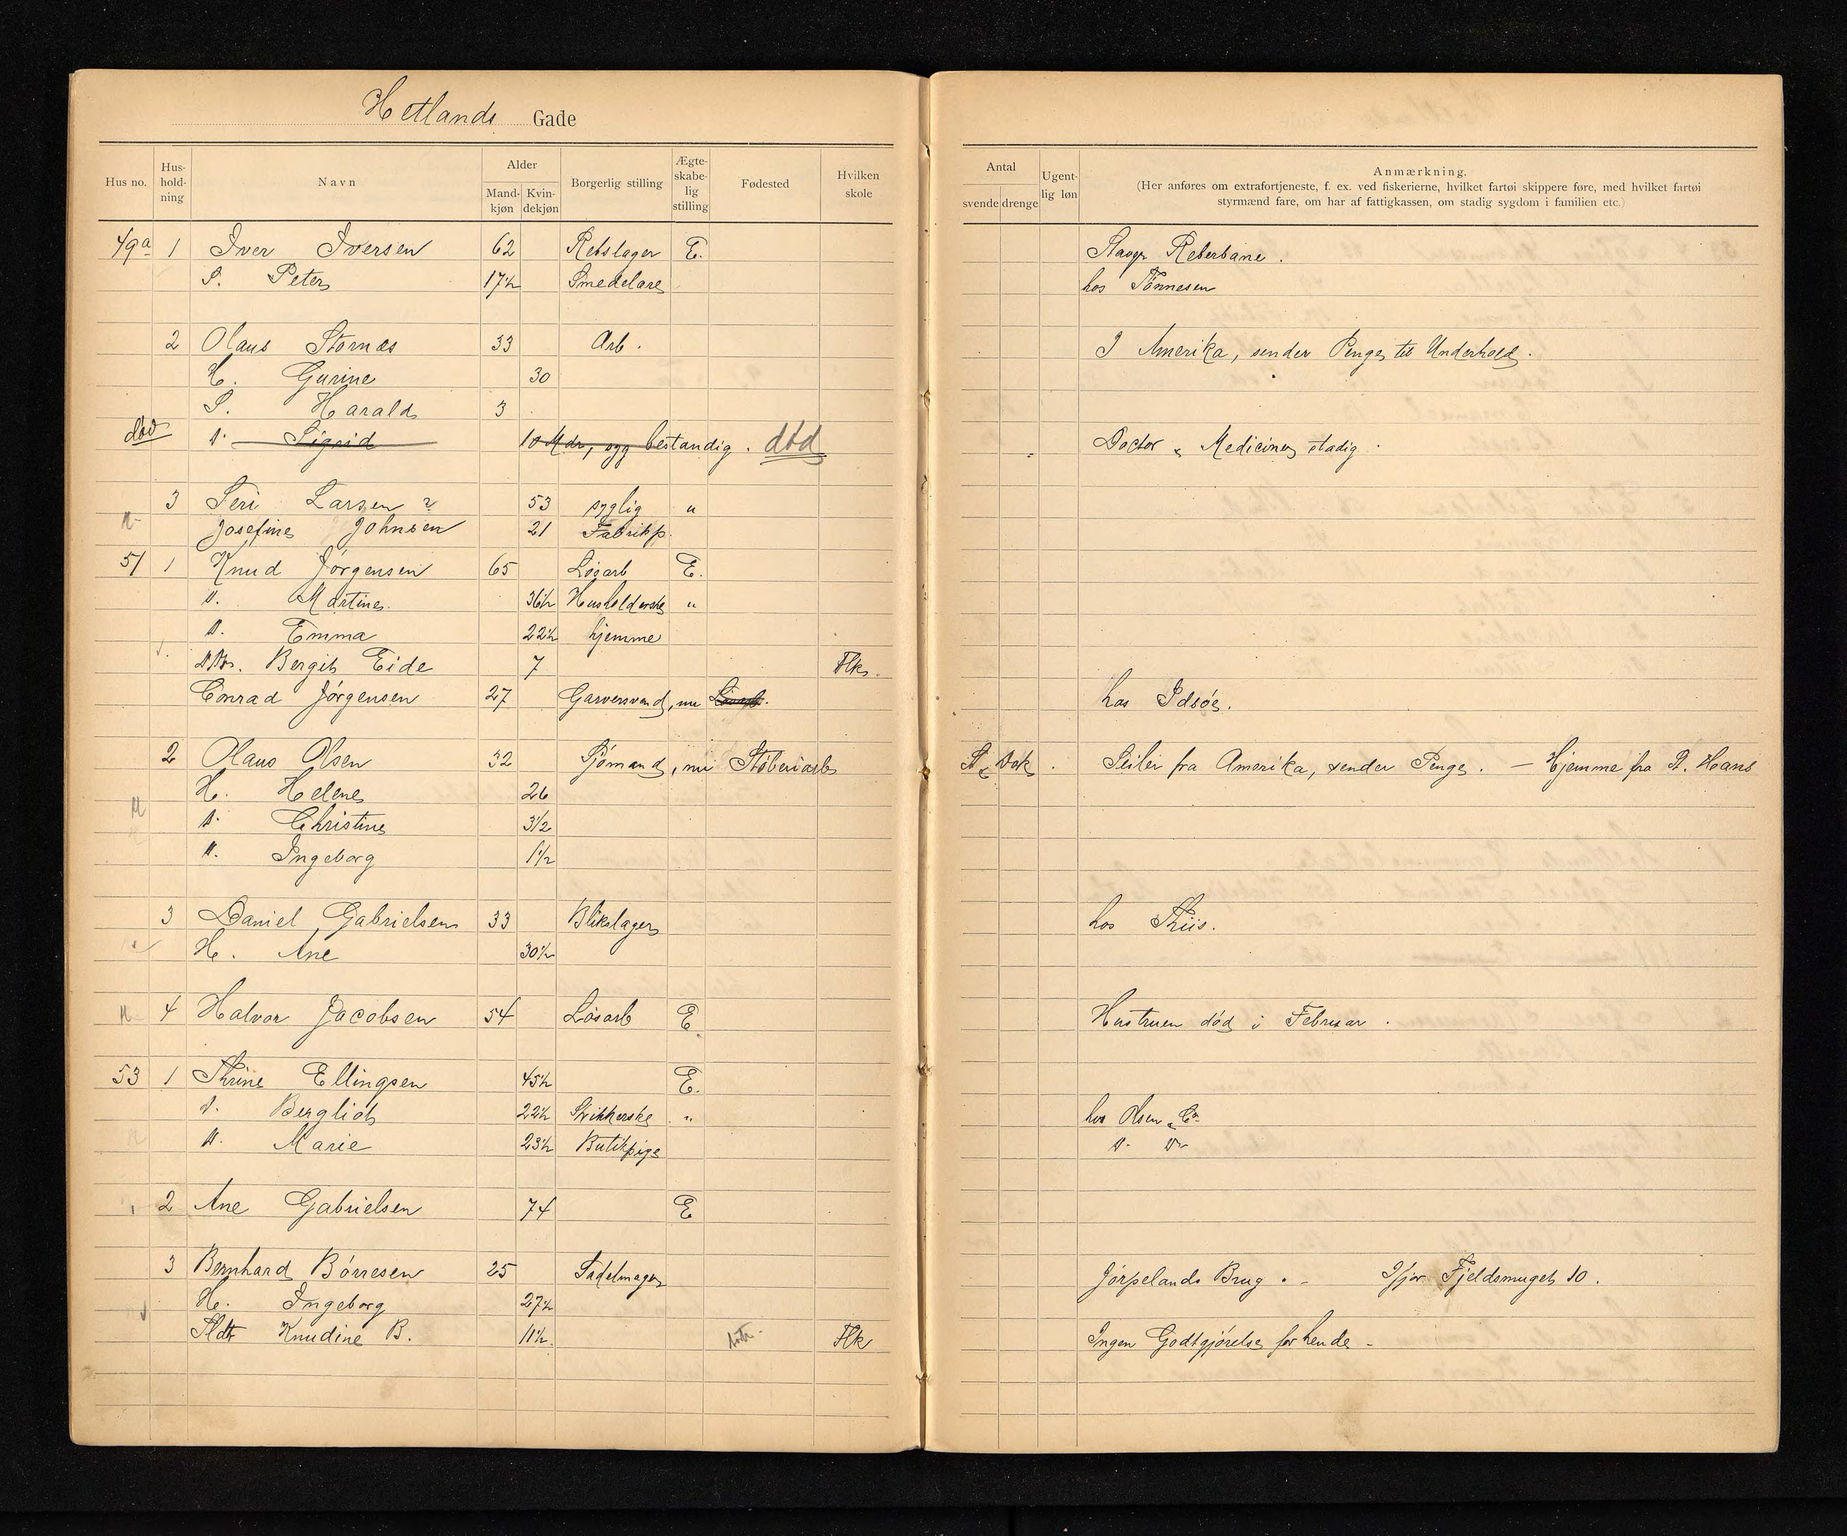 Hetlands Gade
Hus no. Hus-hold-ning Navn Alder Mand-kjøn Kvin-dekjøn Borgerlig stilling Ægte-skabe-lig stilling Fødested Hvilken skole
Antal svende drenge Ugent-lig løn Anmærkning.
(Her anføres om extrafortjeneste, f. ex. ved fiskerierne, hvilket fartøi skippere føre, med hvilket fartøi
styrmænd fare, om har af fattigkassen, om stadig sygdom i familien etc.)
49a 1 Iver Iversen 62 Rebslager E. Stavgr Reberbane.
S. Peter 17½ Smedelære hos Tønnesen
2 Olaus Stornæs 33 Arb. I Amerika, sender Penge til Underhold.
H. Gurine 30
S. Harald 3
død D. Sigrid 10 Mdr, syg bestandig. død Doctor & Medicine stadig.
3 Seri Larsen ? 53 syglig "
Josefine Johnsen 21 Fabrikp.
51 1 Knud Jørgensen 65 Løsarb E.
D. Martine. 36½ Husholderske "
D. Emma 22½ hjemme
Bergit Eide 7 Flk.
Conrad Jørgensen 27 Garversvend, nu Løsarb. hos Idsøe.
2 Olaus Olsen 32 Sjømand, nu Støberiarb St & Dok. Seiler fra Amerika, sender Penge. — Hjemme fra St. Hans
H. Helene 26
D. Christine 3½
D. Ingeborg 1½
3 Daniel Gabrielsen 33 Blikslager hos Thiis.
H. Ane 30½
4 Halvor Jacobsen 54 Løsarb E Hustruen død i Februar.
53 1 Thrine Ellingsen 45½ E.
D. Bergliot 22½ Strikkerske " hos Olsen & Co
D. Marie 23½ Butikpige D. Do
2 Ane Gabrielsen 74 E
3 Bernhard Børresen 25 Sadelmager Jørpelands Brug. - Ifjor Fjeldsmuget 10.
H. Ingeborg 27½
Pldt Knudine B. 11½. Flk Ingen Godtgjørelse for hende -